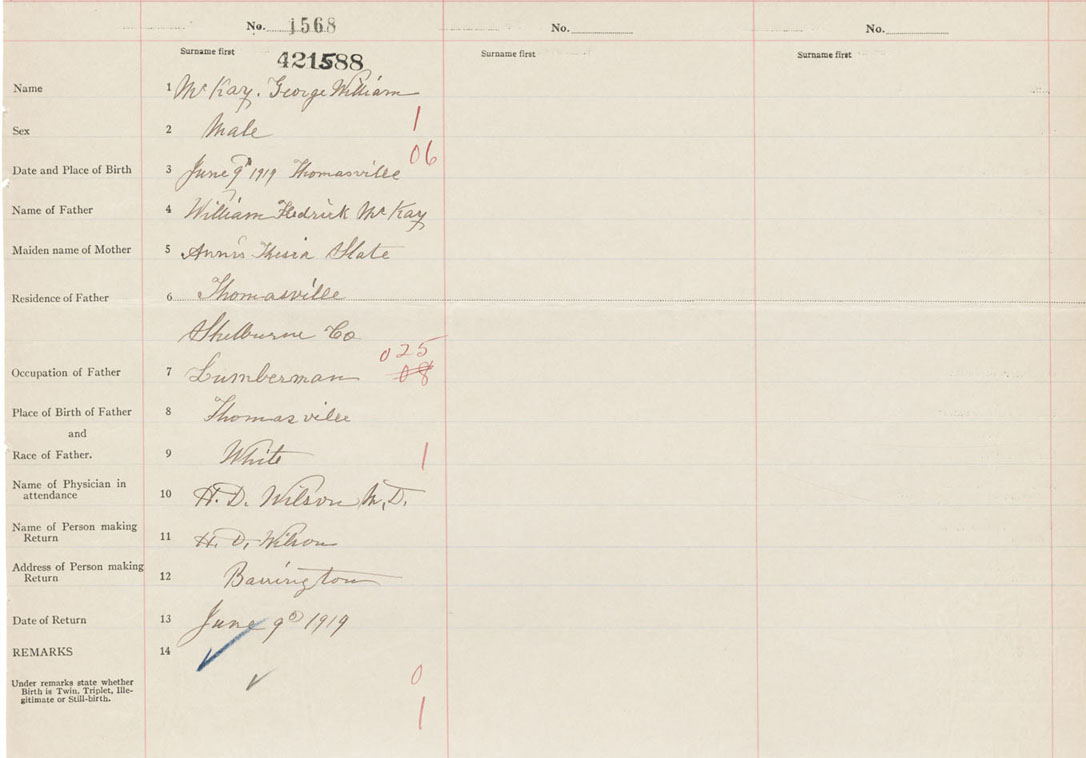 No. 1568
No.
No.
Surname first
Surname first
Surname first
421588
Name 1 McKay. George William
1
Sex 2 Male
06
Date and Place of Birth 3 June 9th 1919 Thomasville
Name of Father 4 William Fledrick McKay
Maiden name of Mother 5 Annis Slate
Residence of Father 6 Thomasville
Shelburne Co
025
Occupation of Father 7 Lumberman 08
Place of Birth of Father 8 Thomasville
and
Race of Father. 9 White 1
Name of Physician in
attendance 10 H. D. Wilson M.D.
Name of Person making
Return 11 H. D. Wilson
Address of Person making
Return 12 Barrington
Date of Return 13 June 9th 1919
REMARKS 14
Under remarks state whether
Birth is Twin, Triplet, Ille-
gitimate or Still-birth.
0
1